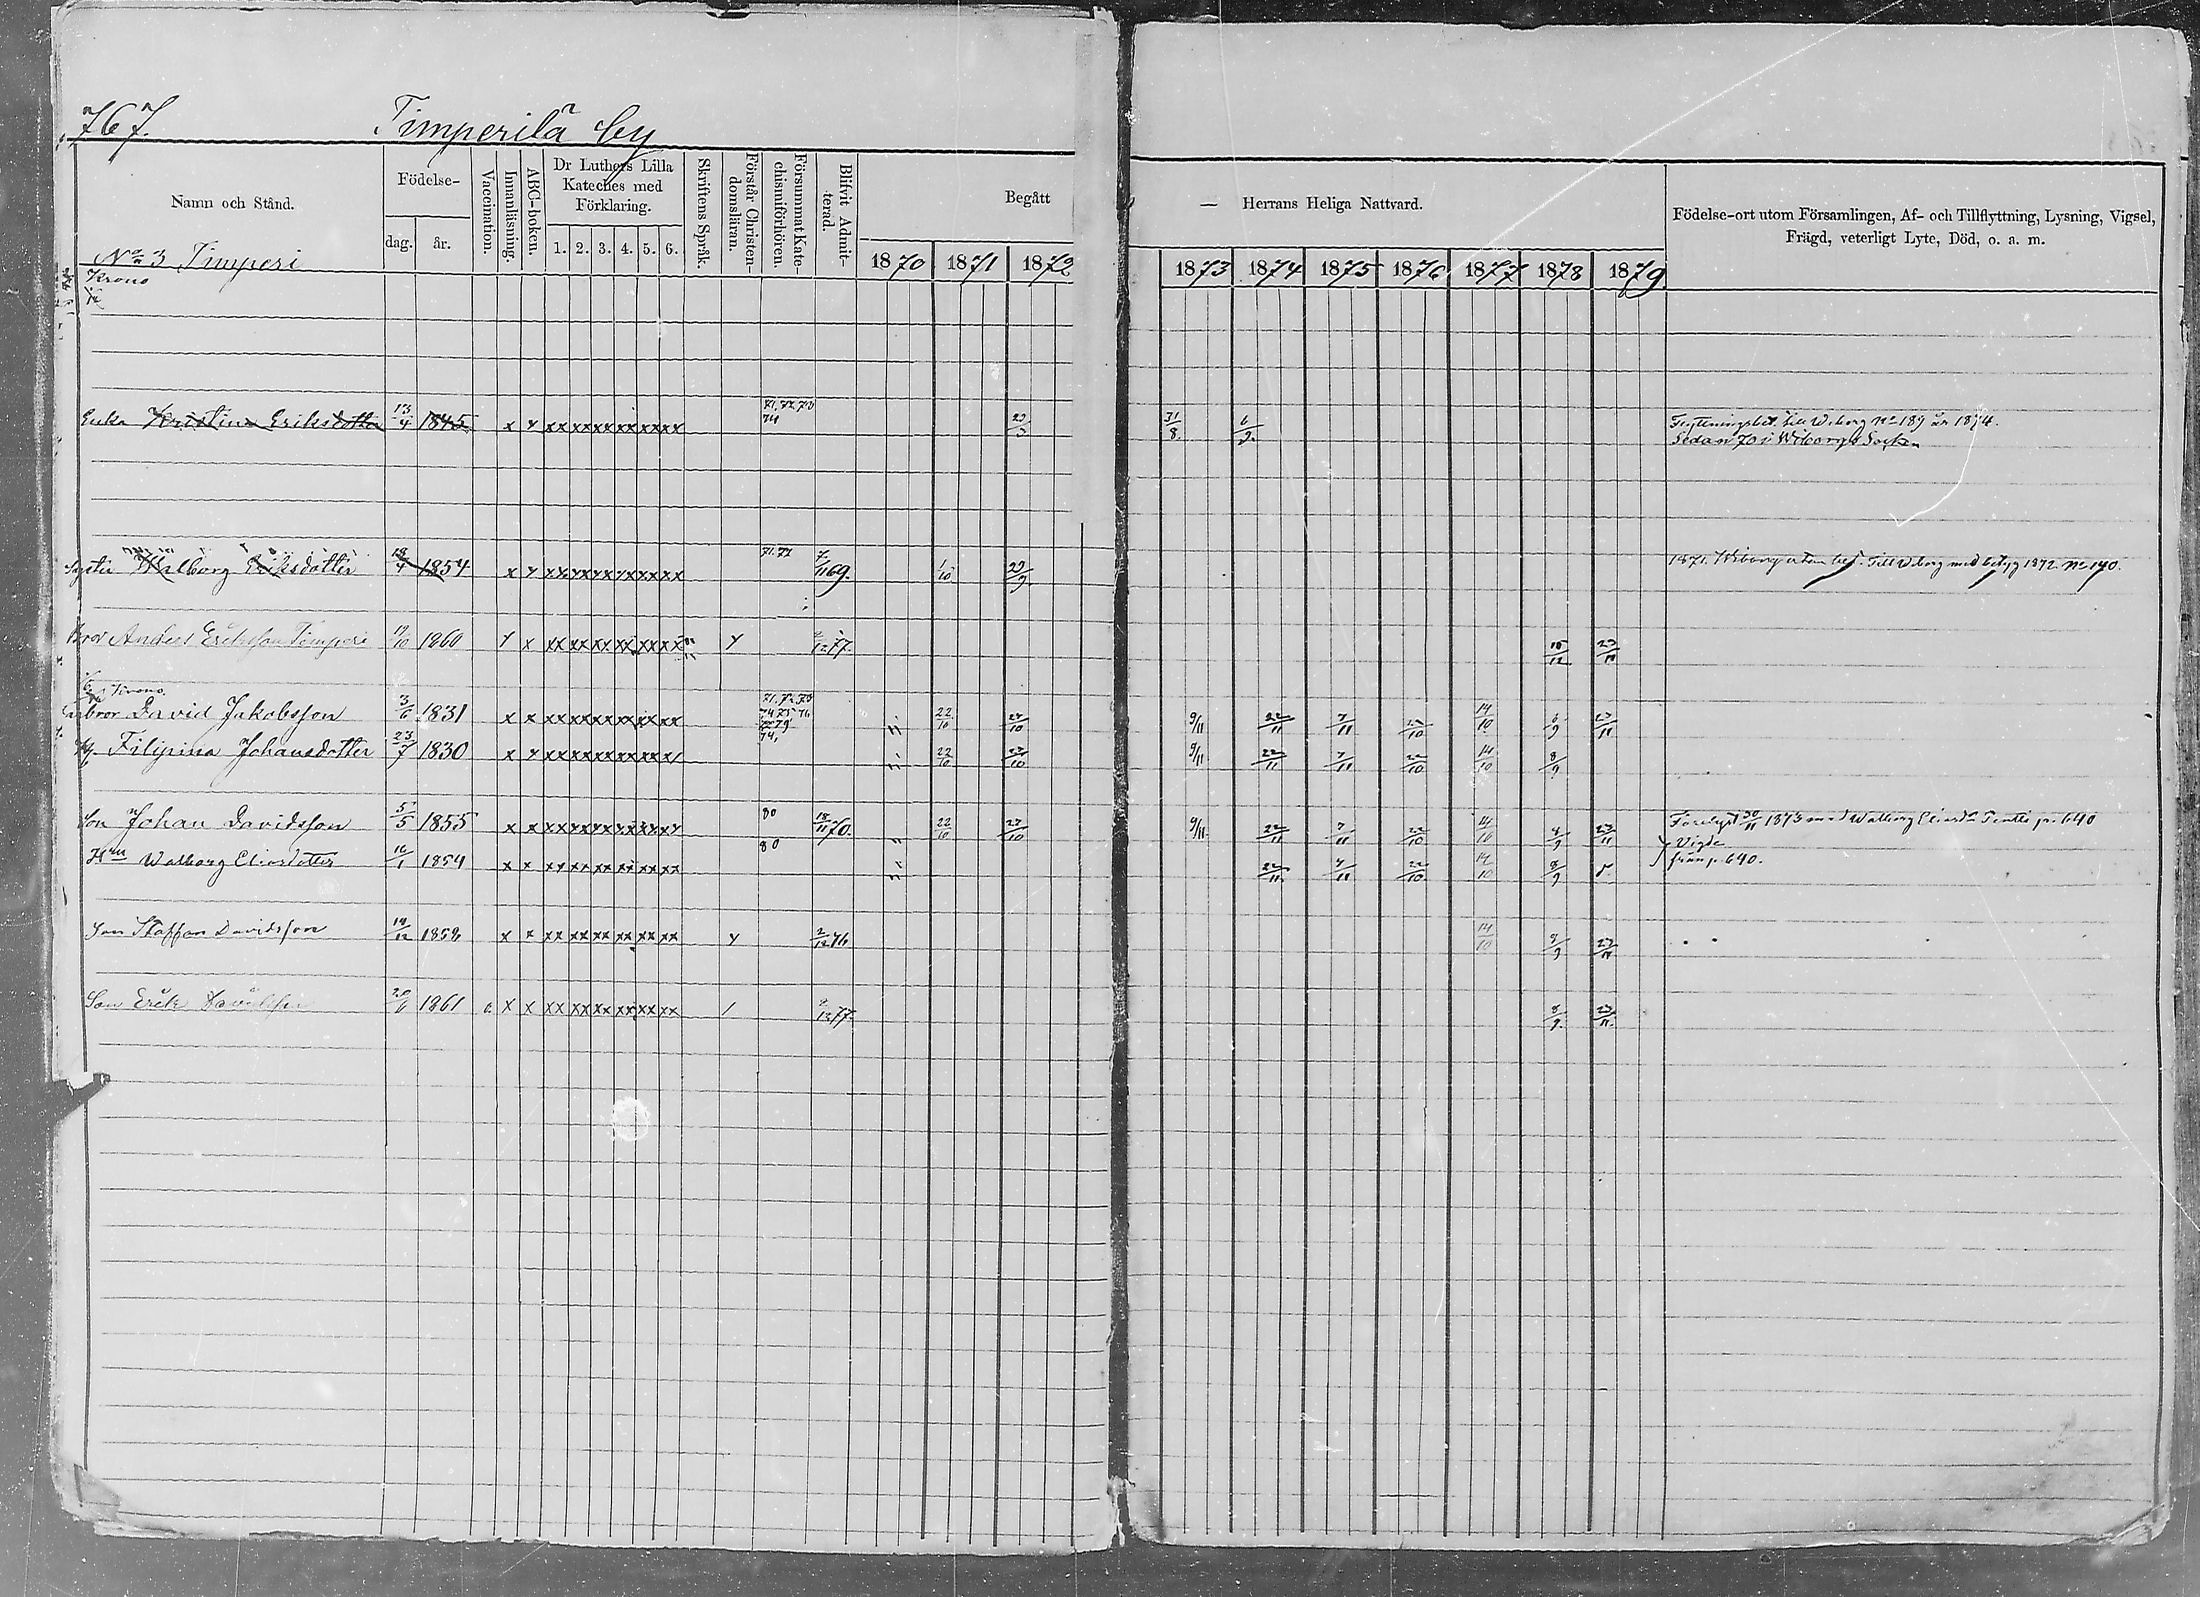 767.
Timperilä by
Namn och Stånd.
Födelse-
dag.
år.
Vaccination.
Innanläsning.
ABC-boken.
Dr Luthers Lilla
Kateches med
Förklaring.
1. 2. 3. 4. 5. 6.
Skriftens Språk.
Förstår Christen-
domsläran.
Försummat Kate-
chismiförhören.
Blifvit Admit-
terad.
Begått
— Herrans Heliga Nattvard.
Födelse-ort utom Församlingen, Af- och Tillflyttning, Lysning, Vigsel,
Frägd, veterligt Lyte, Död, o. a. m.
1870 1871 1872 1873 1874 1875 1876 1877 1878 1879
No 3 Timperi
Krono
Enka Kristina Eriksdotter 13/4 1845 x x xx xx xx xx xx xx 71.72.73 74 31/8. 6/9.
Flyttningsbet. till Wiborg No 189 år 1874.
Sedan 70 i Wiborgs Socken
Syster Walborg Eriksdotter 18/4 1854 x x xx xx xx xx xx xx 71.72 7/11 69. 1/10 29/9
1871. Wiborg utan bet. Till Wiborg med betyg 1872. No 140.
Bror Anders Eriksson Timperi 19/10 1860 x x xx xx xx xx xx xx 2/12 77. 15/12 23/11
Krono
Farbror David Jakobsson 3/6 1831 x x xx xx xx xx xx xx 71.72.73 74 75 76 79 " 22/10 27/10 9/11 22/11 7/11 22/10 14/10 8/9 23/11
H. Filipina Johansdotter 23/7 1830 x x xx xx xx xx xx xx 74, " 22/10 27/10 9/11 22/11 7/11 22/10 14/10 8/9
Son Johan Davidsson 5/5 1855 x x xx xx xx xx xx xx 80 18/11 70. " 22/10 27/10 9/11. 22/11 7/11 22/10 14/10 8/9 23/11
Förelyst 30/11 1873 med Walborg Eliasdr Pentti p. 640
Vigde
Hu Walborg Eliasdotter 16/1 1854 x x xx xx xx xx xx xx 80 " 22/11. 7/11 22/10 14/10 8/9
från p. 640.
Son Staffan Davidsson 19/12 1858 x x xx xx xx xx xx xx 2/12 76 14/10 8/9 23/11
Son Erik Davidsson 20/6 1861 x x xx xx xx xx xx xx 2/12 77. 8/9. 23/11.